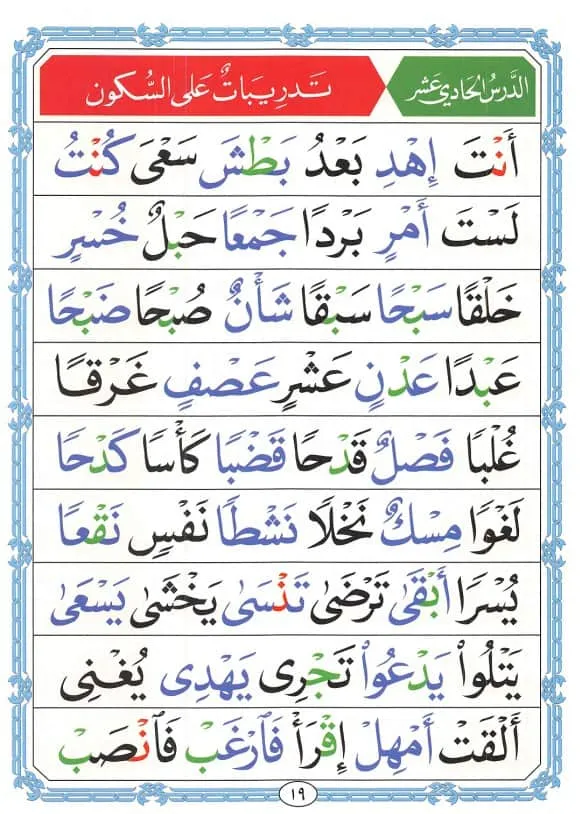 الدَّرْسُ الحَادِي عَشَر تَدْرِيبَاتٌ عَلَى السُّكُون
أَنْتَ إِهْدِ بَعْدُ بَطْشَ سَعْىَ كُنْتُ
لَسْتَ أَمْرٍ بَرْدًا جَمْعًا حَبْلٌ خُسْرٍ
خَلْقًا سَبْحًا سَبْقًا شَأْنٌ صُبْحًا ضَبْحًا
عَبْدًا عَدْنٍ عَشْرٍ عَصْفٍ غَرْقًا
غُلْبًا فَصْلٌ قَدْحًا قَضْبًا كَأْسًا كَدْحًا
لَغْوًا مِسْكٌ نَخْلًا نَشْطًا نَفْسٍ نَقْعًا
يُسْرًا أَبْقَىٰ تَرْضَىٰ تَنْسَىٰ يَخْشَىٰ يَسْعَىٰ
يَتْلُوا۟ يَدْعُوا۟ تَجْرِى يَهْدِى يُغْنِى
أَلْقَتْ أَمْهِلْ إِقْرَأْ فَٱرْغَبْ فَٱنْصَبْ
١٩